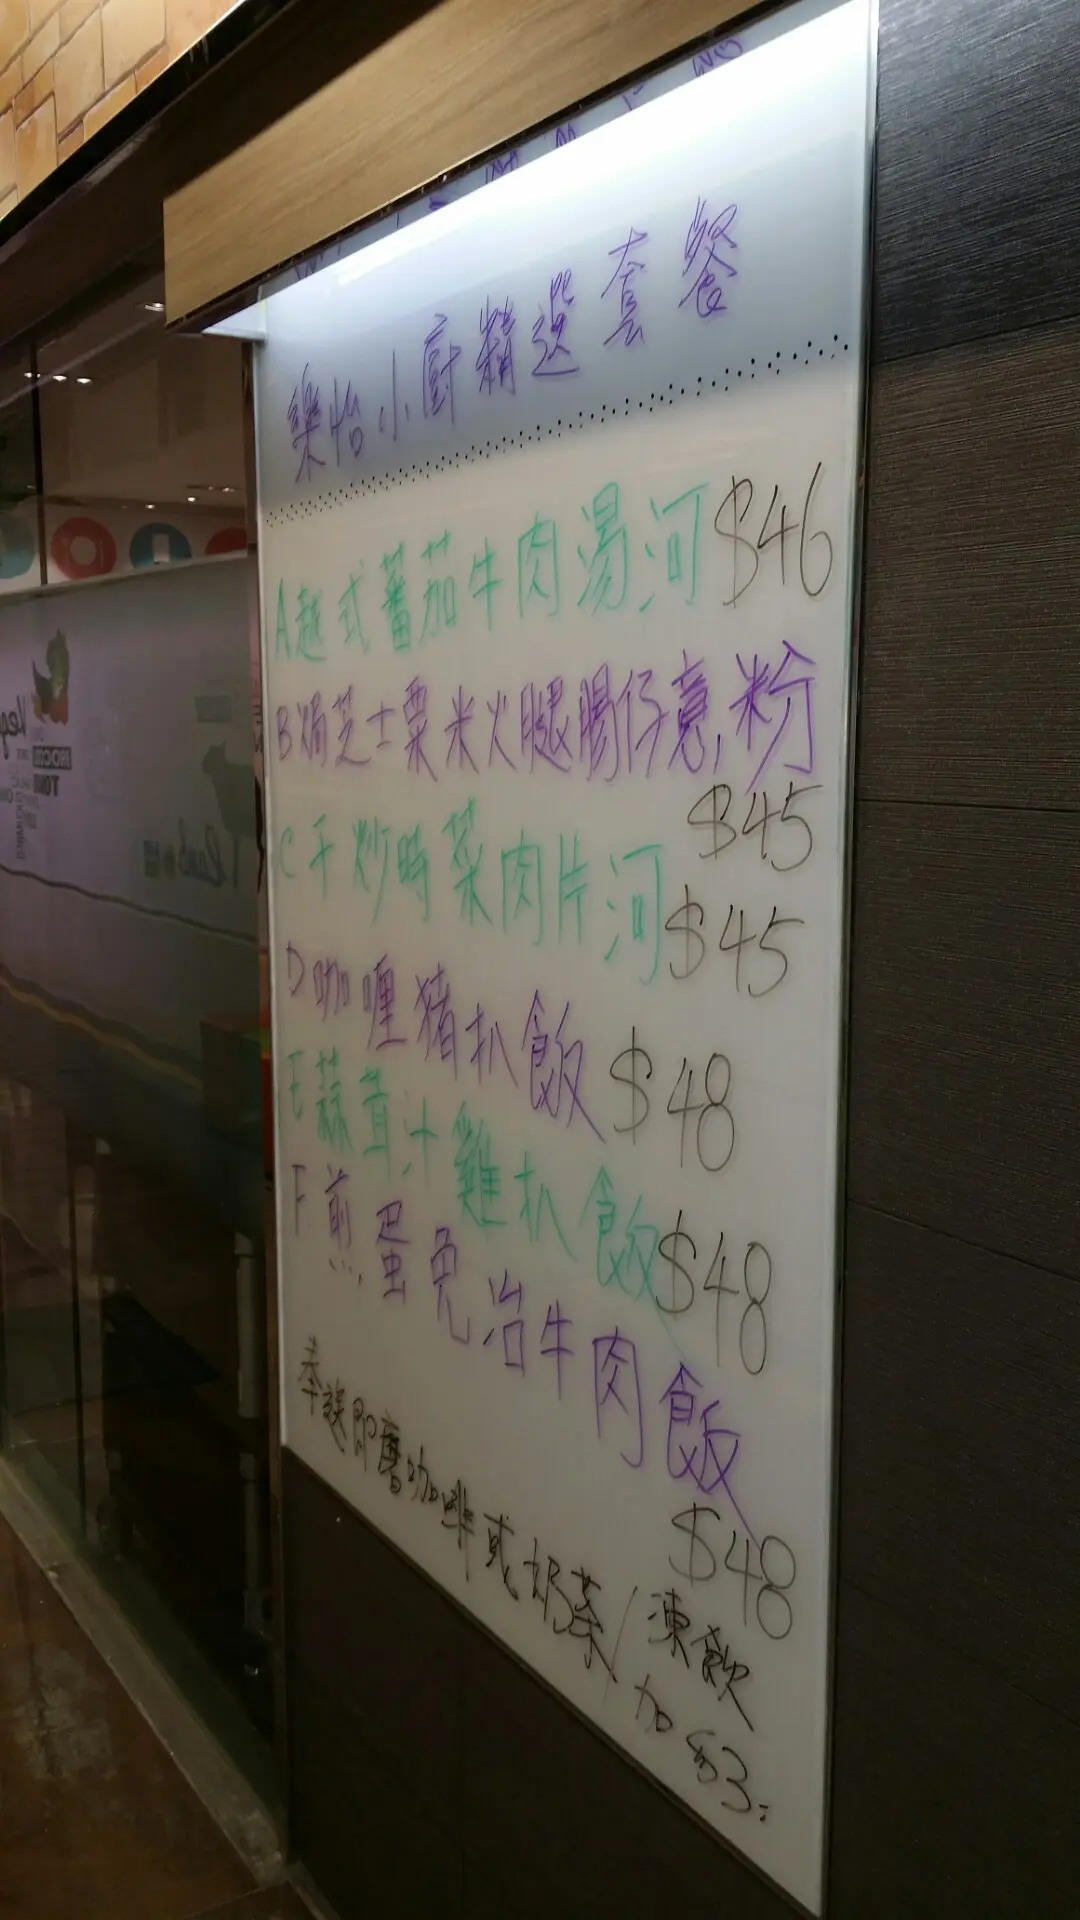 樂怡小廚精選套餐
A越式蕃茄牛肉湯河 $46
B焗芝士粟米火腿腸仔意粉
$45
C干炒時菜肉片河 $45
D咖喱猪扒飯 $48
E蒜茸汁雞扒飯 $48
F煎蛋免治牛肉飯
$48
奉送即磨咖啡或奶茶/凍飲
加$3: